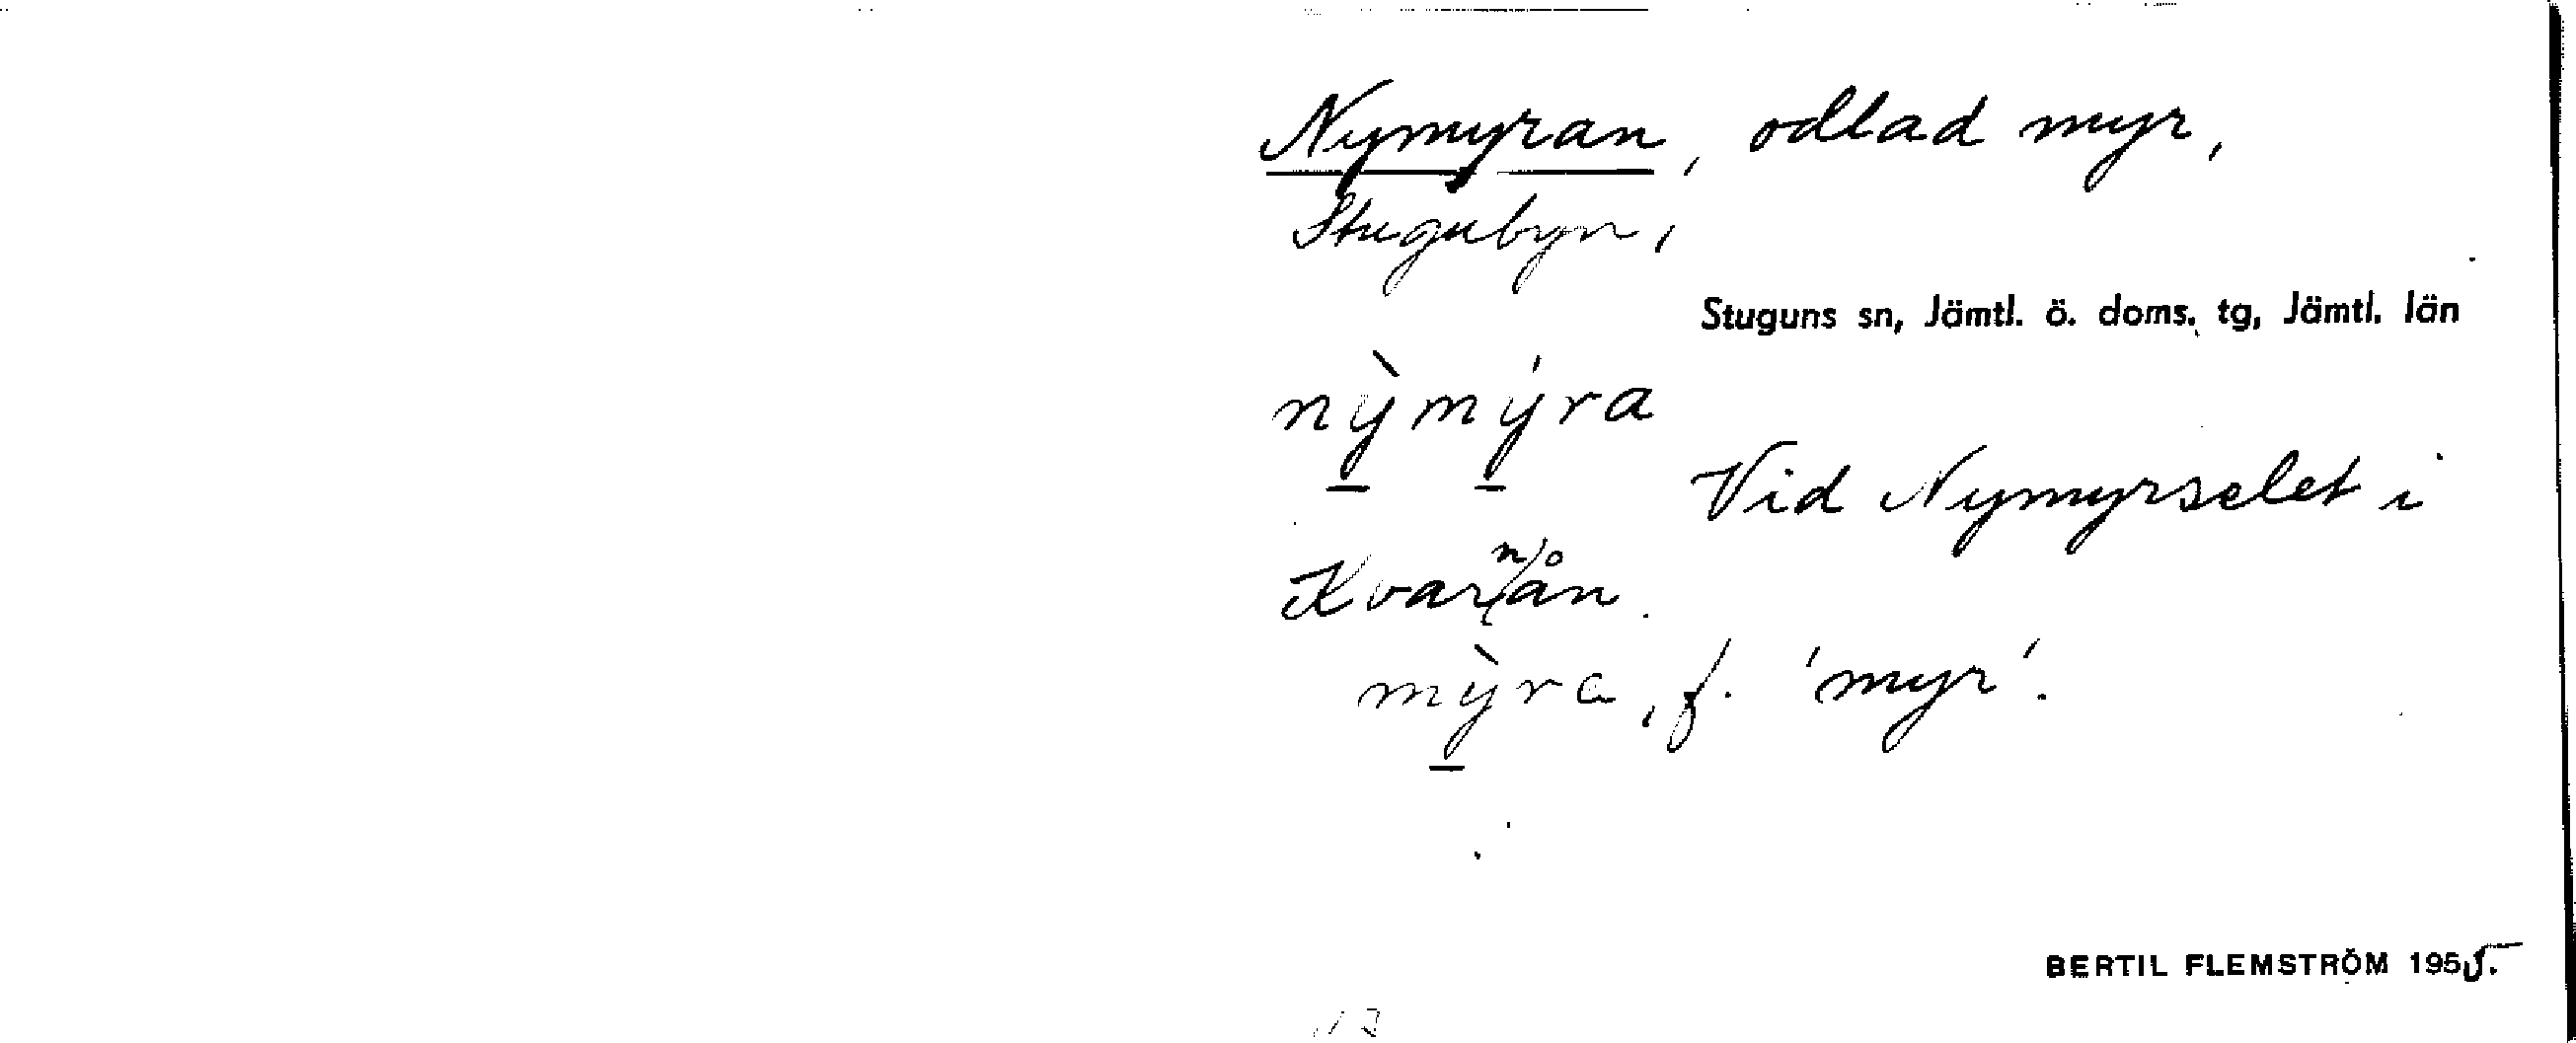 Nymyran, odlad myr,
Stugubyn,
Stuguns sn, Jämtl. ö. doms. tg, Jämtl. län
nỳmýra
Vid Nymyrselet i
Kvarnån.
mỳra, f. 'myr'.
BERTIL FLEMSTRÖM 1955.